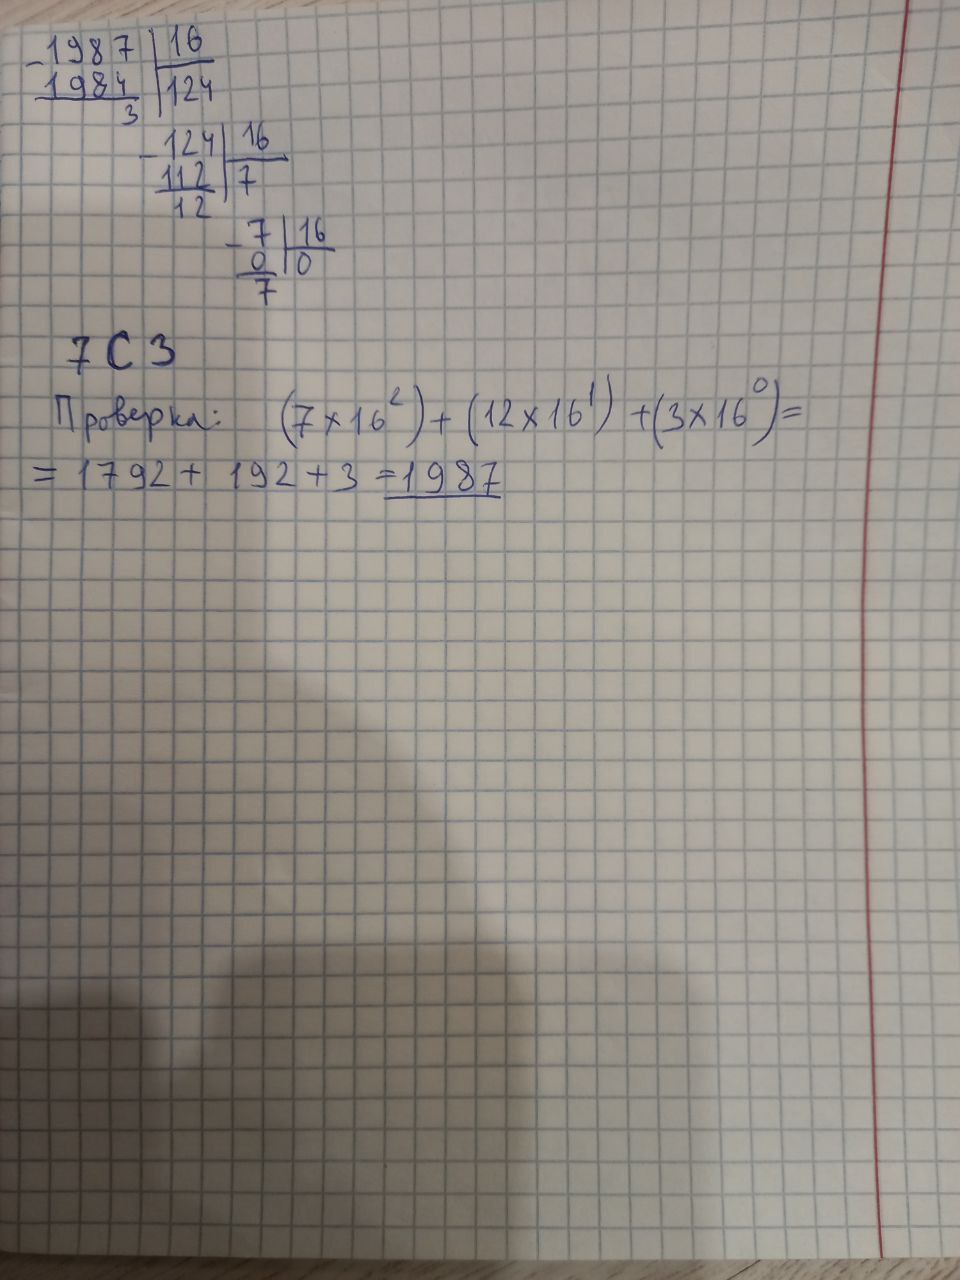 -1987 | 16
1984 | 124
3
-124 | 16
112 | 7
12
-7 | 16
0 | 0
7
7 C 3
Проверка: (7 × 16²) + (12 × 16¹) + (3 × 16⁰) =
= 1792 + 192 + 3 = 1987